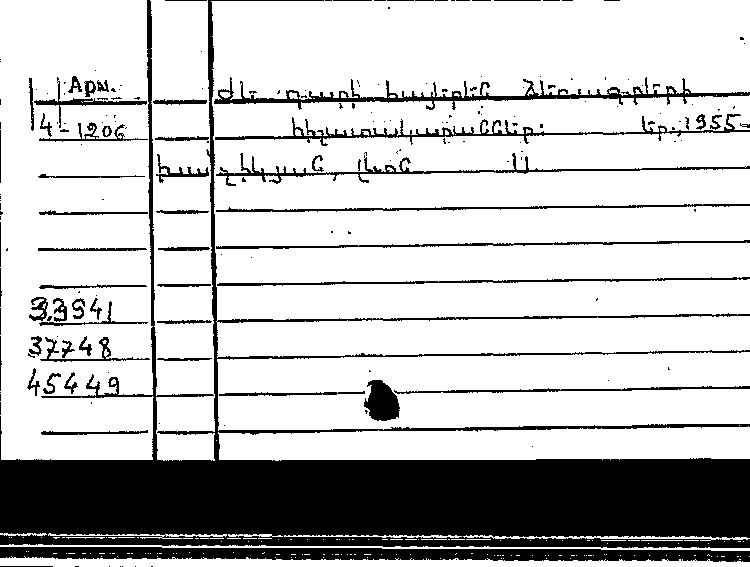 Арм. ԺԵ դարի հայերեն ձեռագրերի
4-1206 հիշատակարաններ: Եր., 1955-
Խաչիկյան, Լևոն Ս.
33941
37748
45449